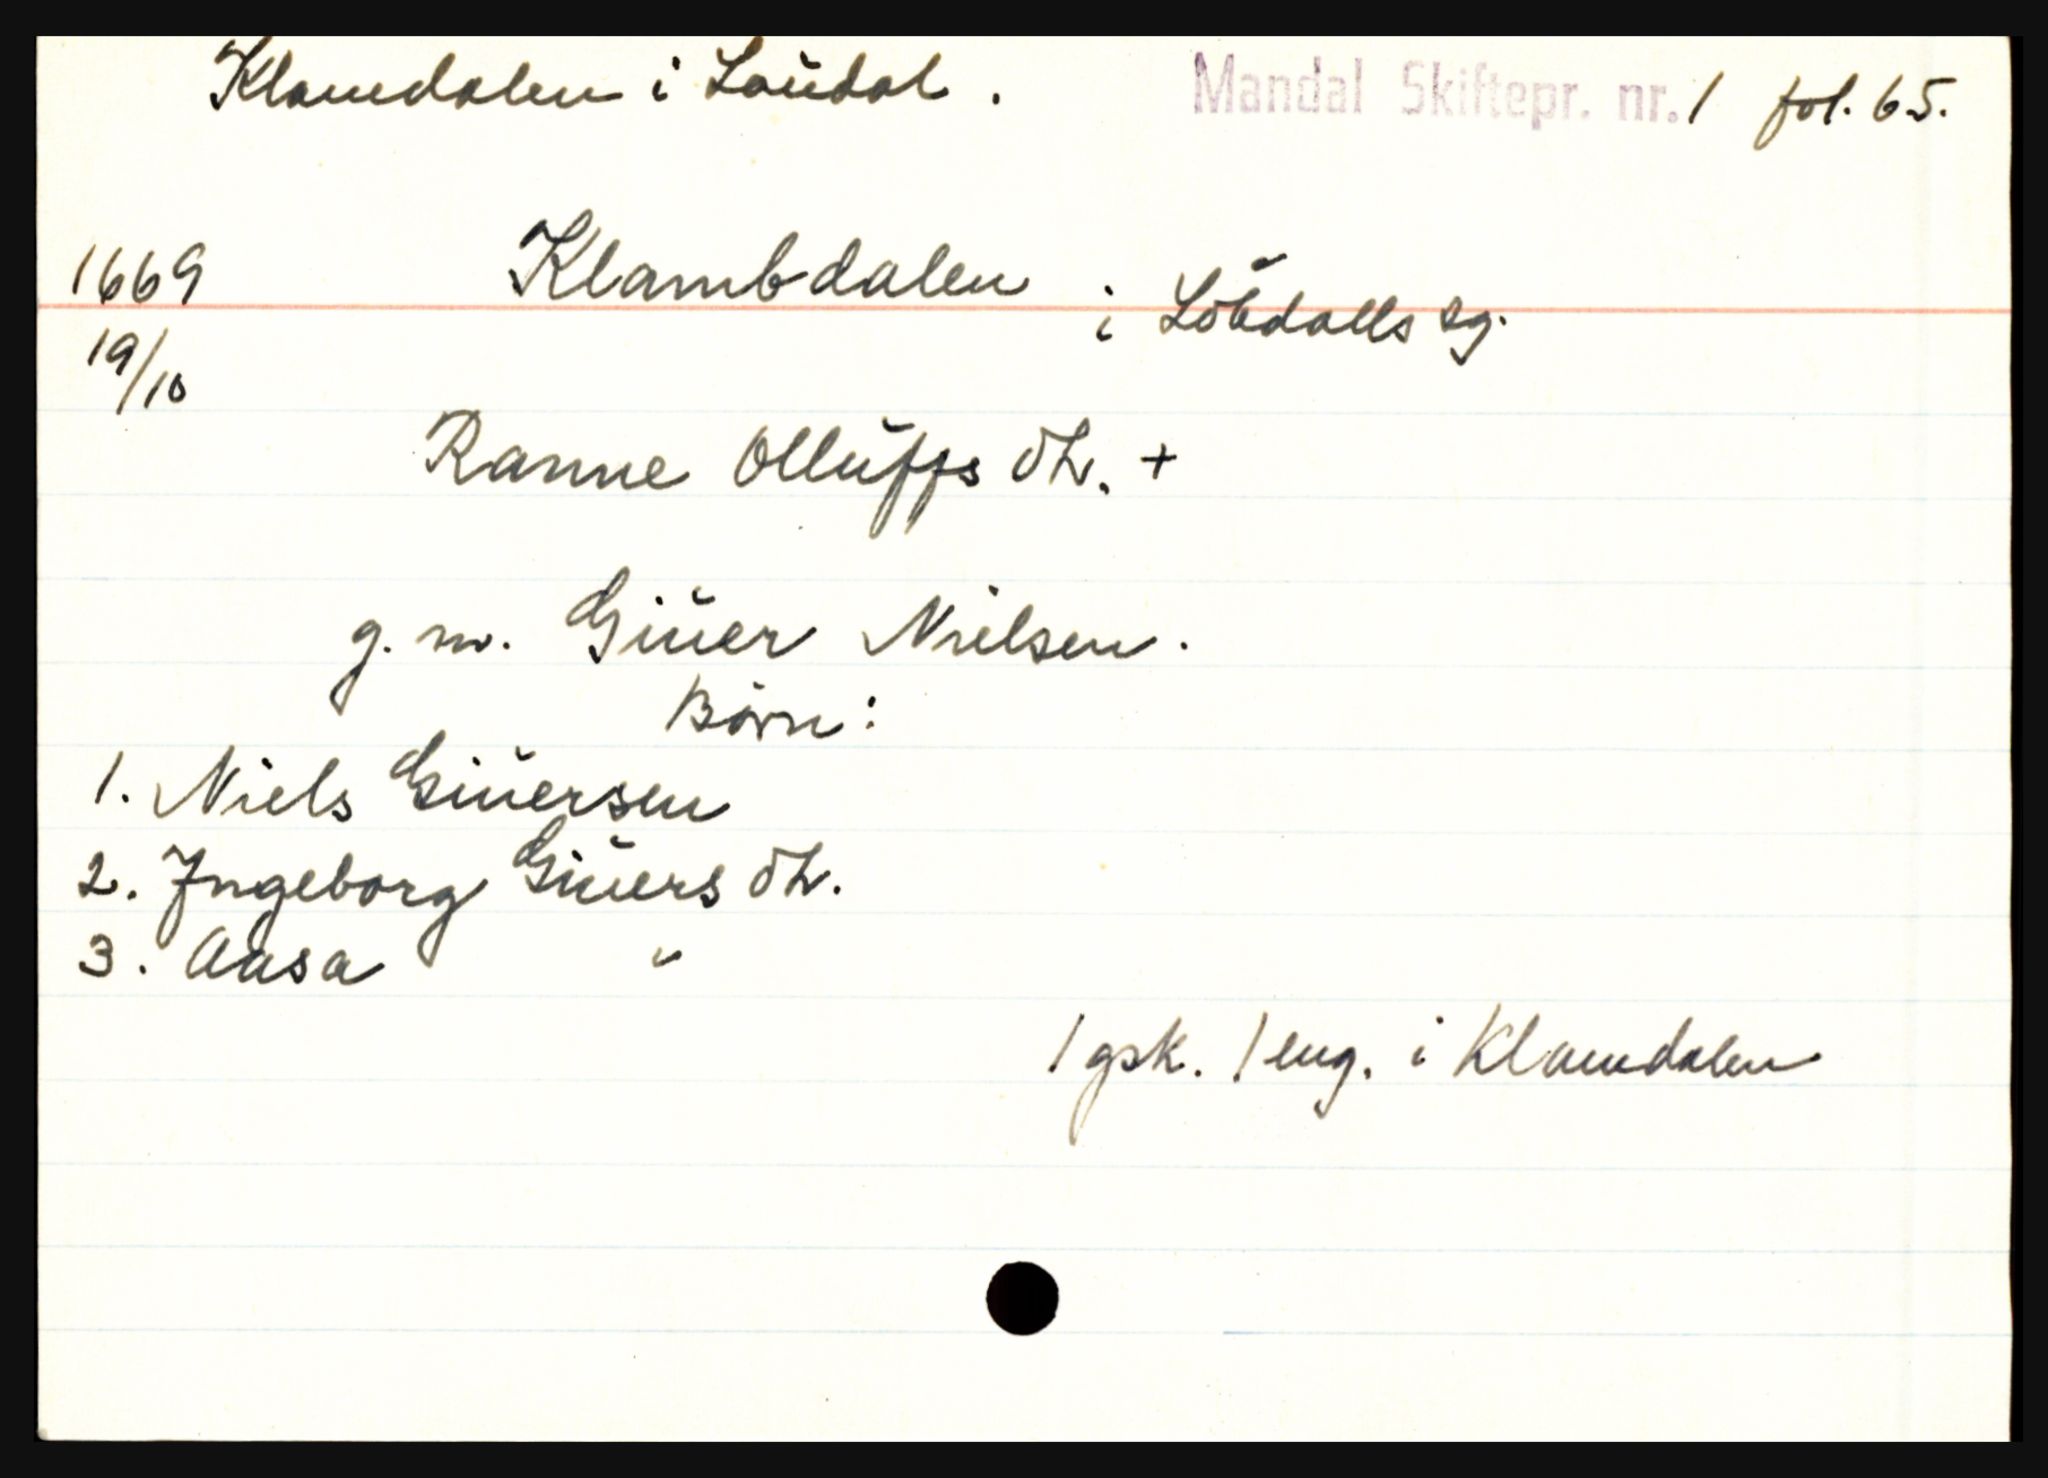 Klamdalen i Laudal. Mandal Skiftepr. nr. 1 fol. 65.
1669 Klambdalen i Löŭdalls sg.
19/10
Ranne Olluffs dtr. +
g. m. Giuer Nielsen.
Børn:
1. Niels Giuersen
2. Ingeborg Giuers dtr.
3. Aasa "
1 gsk. 1 eng. i Klamdalen